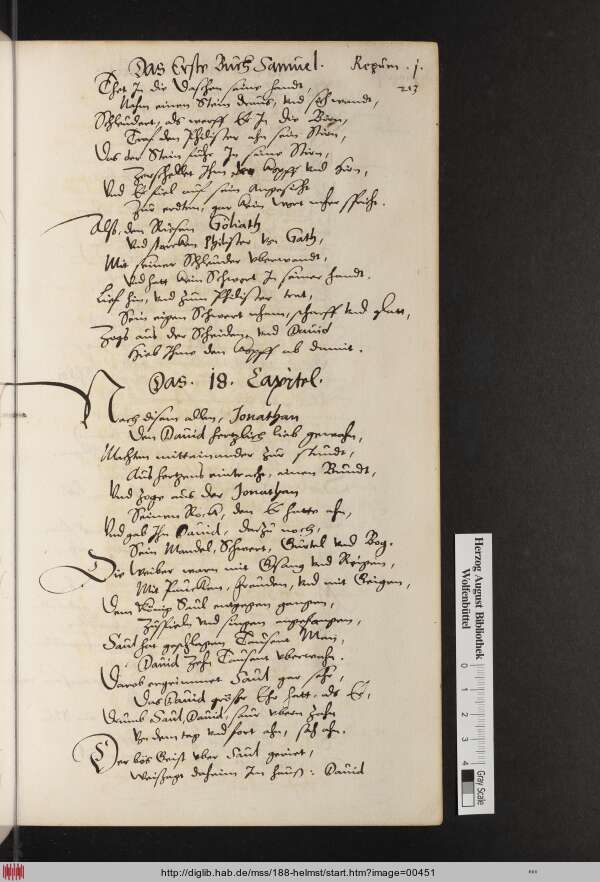 Das Erste Buch Samuel. Regum. j.
213
Thet In die Daschen seine handt,
Nahm einen Stein draus, vnd sich wandt,
Schleudert, als warff Er In die Birn,
Traf den Philister ahn sein Stirn,
Das der Stein fuhr In seine Stirn,
Zerschellet Ihm den kopff vnd Hirn,
Vnd Er fiel auf sein Angesicht
Zur erdten, gar kein wort mher spricht.
Alss, den Riesen Goliath
Vnd starcken Philister von Gath,
Mit seiner Schleuder vberwandt,
Vnd hatt kein Schwert In seiner handt.
Lief hin, vnd zum Philister trat,
Sein eigen Schwert nham, scharff vnd glatt,
Zogs aus der Scheiden, vnd Dauid
Hieb Ihme den kopff ab damit.
Das. 18. Capitel.
Nach disem allen, Jonathan
Den Dauid hertzlich lieb gewahn,
Machten mitteinander zur stundt,
Aus hertzens eintracht, einen Bundt,
Vnd zoge aus der Jonathan
Seinen Rock, den Er hatte ahn,
Vnd gab Ihn Dauid, darzu noch,
Sein Mandel, Schwert, Gürtel vnd Bog.
Die Weiber warn mit Gsang vnd Reigen,
Mit Paucken, freuden, vnd mit Geigen,
Dem König Saul entgegen gangen,
Zuspieln vnd singen angefangen,
Saul hat geschlagen Tausent Man,
Dauid Zehn Tausent vberwahn.
Darob ergrimmet Saul gar sehr,
Das Dauid grösser Ehr hatt, als Er,
Drumb Saul Dauid, saur vbern Zahn
Von dem tag vnd fort ahn, sah ahn.
Der bös Geist vber Saul geriet,
Weissagt daheim Im hauss: Dauid
Herzog August Bibliothek
Wolfenbüttel
0 1 2 3 4
Gray Scale
http://diglib.hab.de/mss/188-helmst/start.htm?image=00451